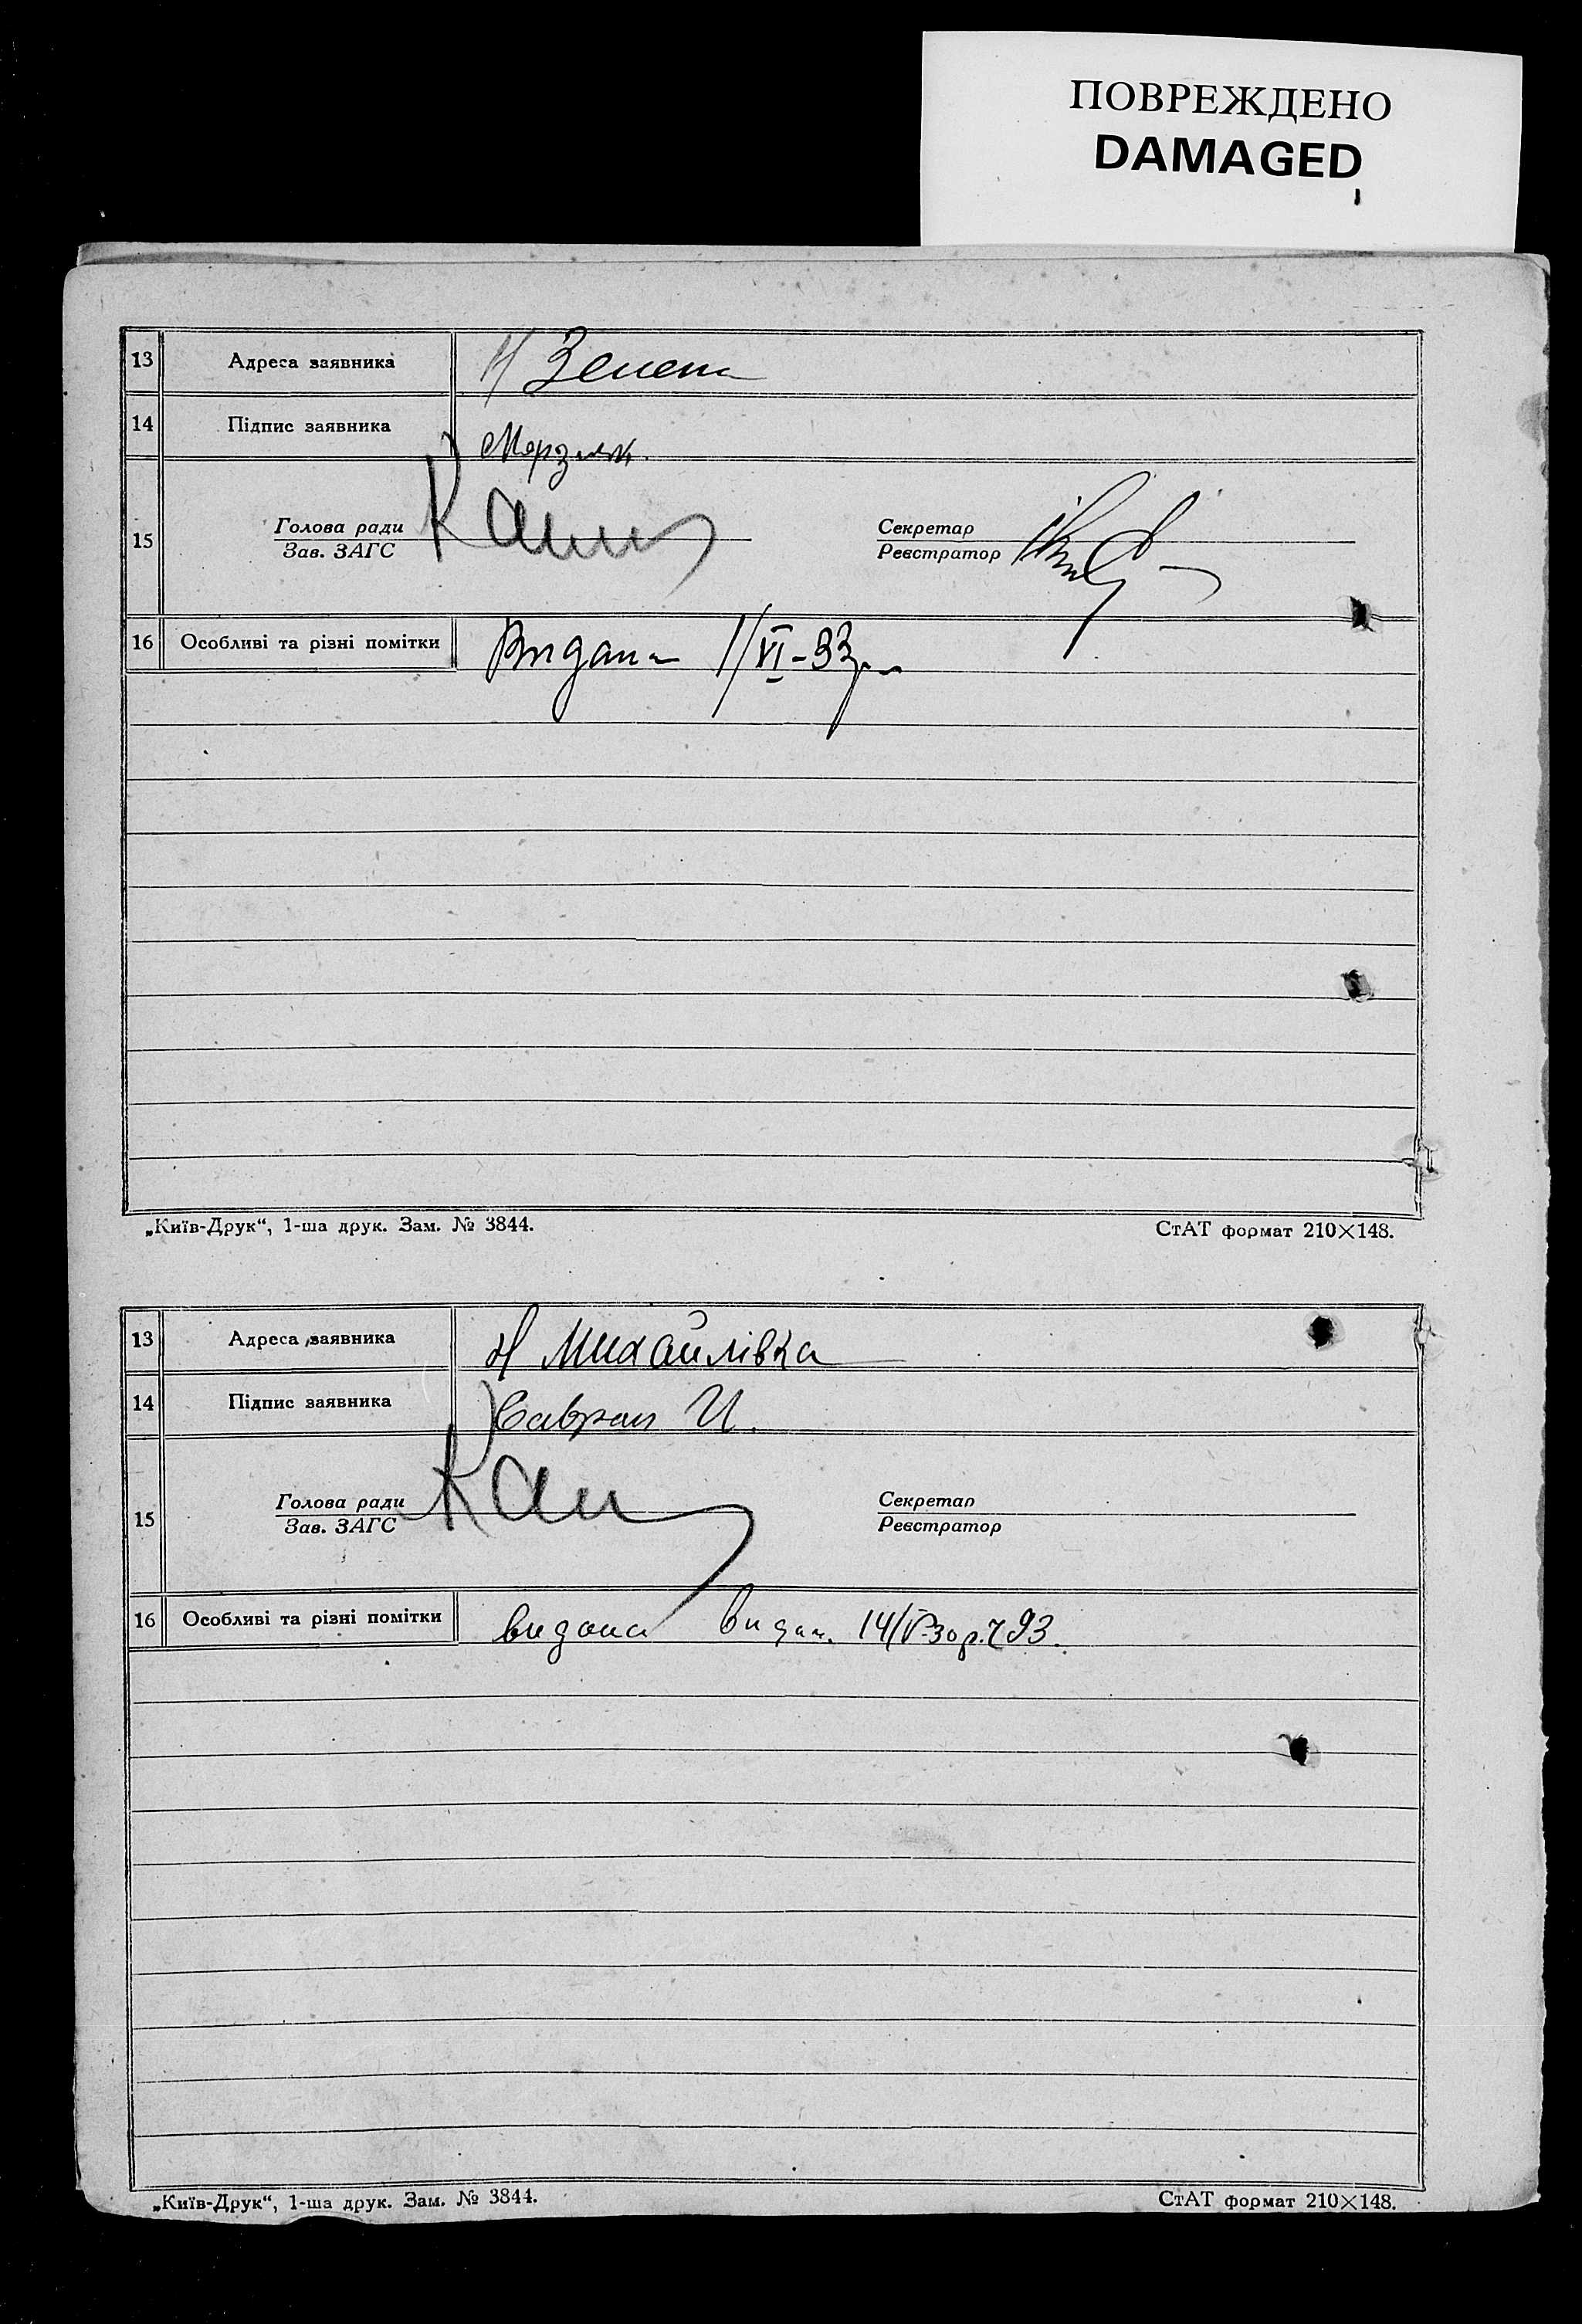 ПОВРЕЖДЕНО
DAMAGED
13 Адреса заявника
14 Підпис заявника
15 Голова ради Секретар
Зав. ЗАГС Реєстратор
16 Особливі та різні помітки Видана 1/VI-33р.
„Київ-Друк“, 1-ша друк. Зам. № 3844. СтАТ формат 210×148.
13 Адреса заявника Н Михайлівка
14 Підпис заявника
15 Голова ради Секретар
Зав. ЗАГС Реєстратор
16 Особливі та різні помітки видана видан. 14/V-30р.
„Київ-Друк“, 1-ша друк. Зам. № 3844. СтАТ формат 210×148.